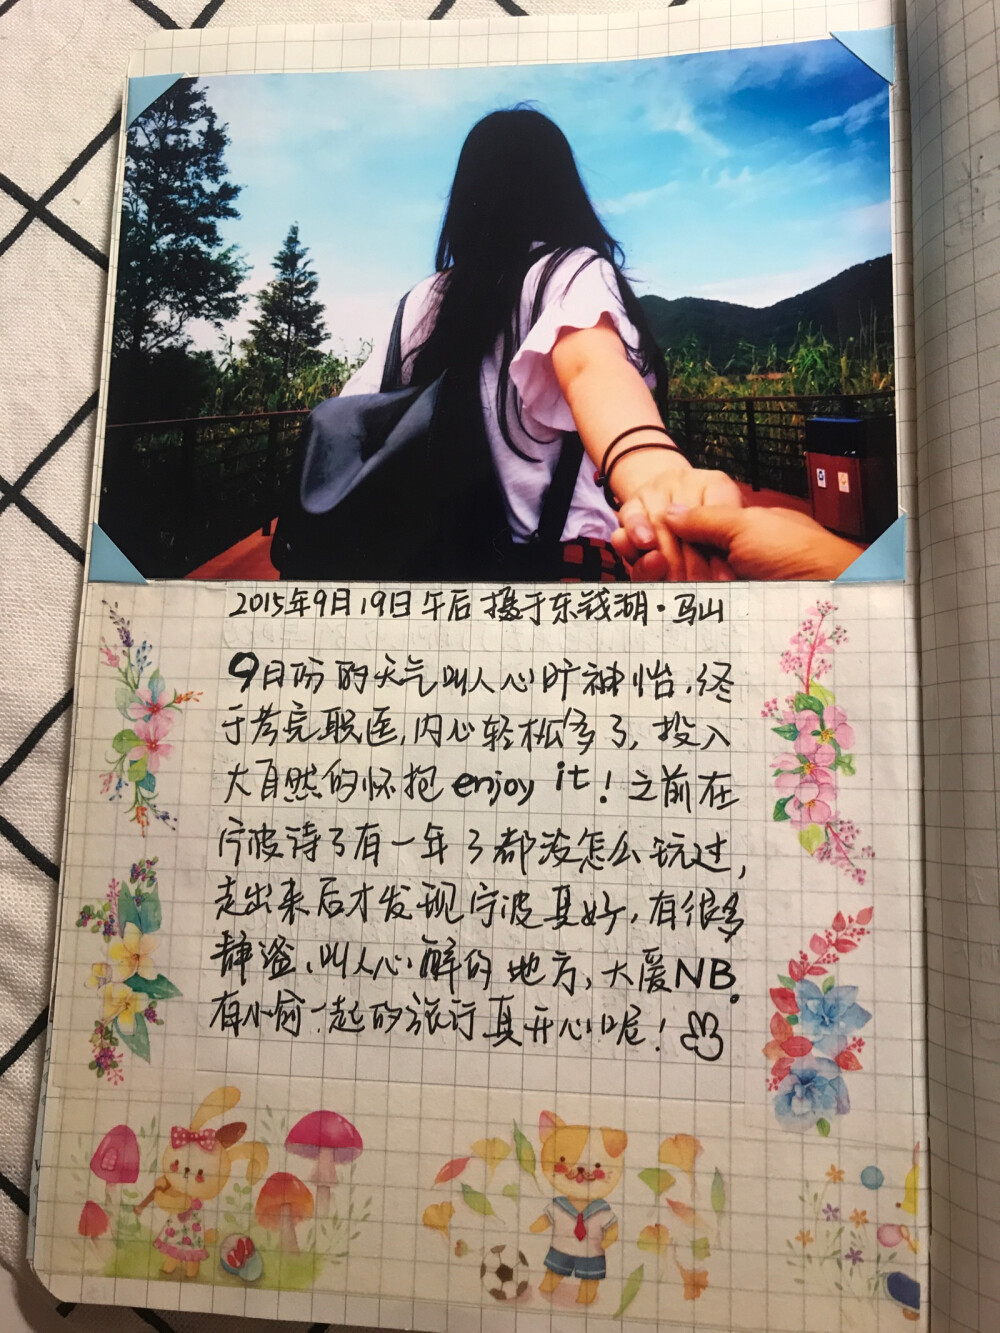 2015年9月19日午后摄于东钱湖·马山
9月份的天气叫人心旷神怡,终
于考完职医,内心轻松多了,投入
大自然的怀抱enjoy it!之前在
宁波待了有一年了都没怎么玩过,
走出来后才发现宁波真好,有很多
静谧、叫人心醉的地方,大爱NB。
有小俞一起的旅行真开心呢!